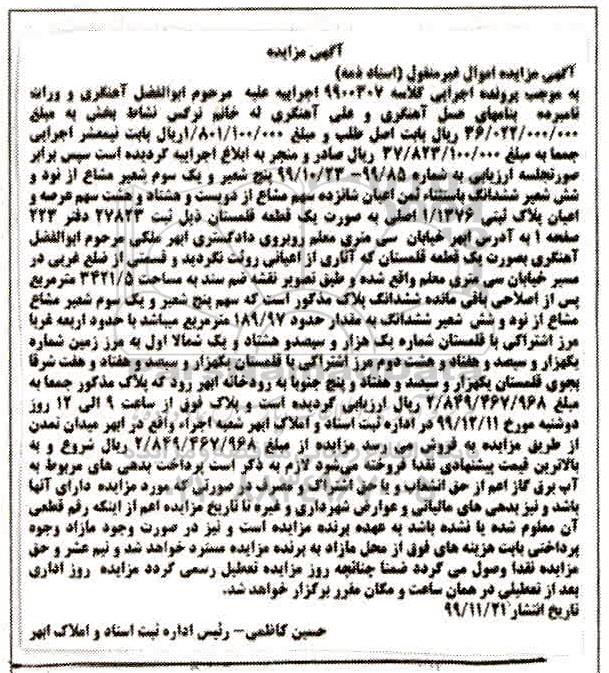 آگهی مزایده
آگهی مزایده اموال غیرمنقول (اسناد ذمه)
به موجب پرونده اجرایی کلاسه ۹۹۰۰۳۰۷ اجراییه علیه مرحوم ابوالفضل آهنگری و وراث
نامبرده بنامهای عسل آهنگری و علی آهنگری له خانم نرگس نشاط بخش به مبلغ
۳۶/۰۲۲/۰۰۰/۰۰۰ ریال بابت اصل طلب و مبلغ ۱/۸۰۱/۱۰۰/۰۰۰ریال بابت نیمعشر اجرایی
جمعا به مبلغ ۳۷/۸۲۳/۱۰۰/۰۰۰ ریال صادر و منجر به ابلاغ اجراییه گردیده است سپس برابر
صورتجلسه ارزیابی به شماره ۹۹/۸۵- ۹۹/۱۰/۲۳ پنج شعیر و یک سوم شعیر مشاع از نود و
شش شعیر ششدانگ باستثناء ثمن اعیان شانزده سهم مشاع از دویست و هشتاد و هشت سهم عرصه و
اعیان پلاک ثبتی ۱/۱۳۷۶ اصلی به صورت یک قطعه قلمستان ذیل ثبت ۲۷۸۲۳ دفتر ۲۲۳
صفحه ۱ به آدرس ابهر خیابان سی متری معلم روبروی دادگستری ابهر ملکی مرحوم ابوالفضل
آهنگری بصورت یک قطعه قلمستان که آثاری از اعیانی روئت نگردید و قسمتی از ضلع غربی در
مسیر خیابان سی متری معلم واقع شده و طبق تصویر نقشه ضم سند به مساحت ۳۴۲۱/۵ مترمربع
پس از اصلاحی باقی مانده ششدانگ پلاک مذکور است که سهم پنج شعیر و یک سوم شعیر مشاع
مشاع از نود و شش شعیر ششدانگ به مقدار حدود ۱۸۹/۹۷ مترمربع میباشد با حدود اربعه غربا
مرز اشتراکی با قلمستان شماره یک هزار و سیصدو هشتاد و یک شمالا اول به مرز زمین شماره
یکهزار و سیصد و هفتاد و هشت دوم مرز اشتراکی با قلمستان یکهزار و سیصد و هفتاد و هفت شرقا
بجوی قلمستان یکهزار و سیصد و هفتاد و پنج جنوبا به رودخانه ابهر رود که پلاک مذکور جمعا به
مبلغ ۲/۸۴۹/۴۶۷/۹۶۸ ریال ارزیابی گردیده است و پلاک فوق از ساعت ۹ الی ۱۲ روز
دوشنبه مورخ ۹۹/۱۲/۱۱ در اداره ثبت اسناد و املاک ابهر شعبه اجراء واقع در ابهر میدان تمدن
از طریق مزایده به فروش می رسد مزایده از مبلغ ۲/۸۴۹/۴۶۷/۹۶۸ ریال شروع و به
بالاترین قیمت پیشنهادی نقدا فروخته می‌شود لازم به ذکر است پرداخت بدهی های مربوط به
آب برق گاز اعم از حق انشعاب و یا حق اشتراک و مصرف در صورتی که مورد مزایده دارای آنها
باشد و نیز بدهی های مالیاتی و عوارض شهرداری و غیره تا تاریخ مزایده اعم از اینکه رقم قطعی
آن معلوم شده یا نشده باشد به عهده برنده مزایده است و نیز در صورت وجود مازاد وجوه
پرداختی بابت هزینه های فوق از محل مازاد به برنده مزایده مسترد خواهد شد و نیم عشر و حق
مزایده نقدا وصول می گردد ضمنا چنانچه روز مزایده تعطیل رسمی گردد مزایده روز اداری
بعد از تعطیلی در همان ساعت و مکان مقرر برگزار خواهد شد.
تاریخ انتشار ۹۹/۱۱/۲۱
حسین کاظمی- رئیس اداره ثبت اسناد و املاک ابهر